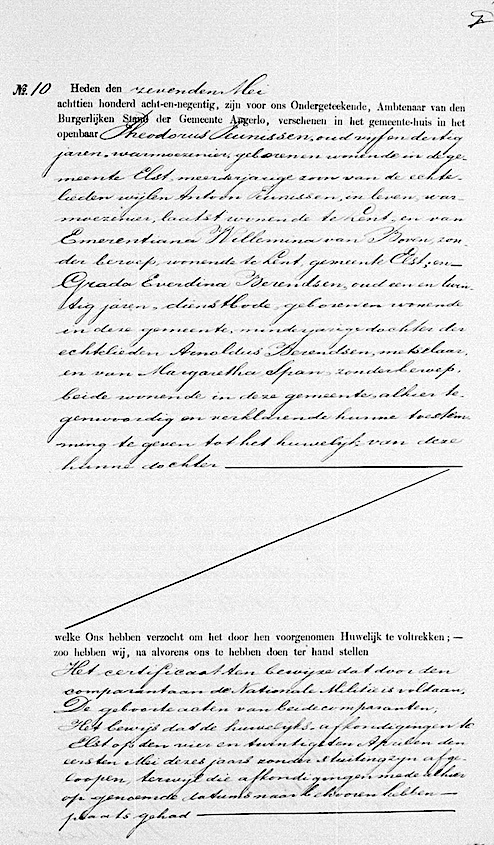 No. 10 Heden den zevenden Mei
achttien honderd acht-en-negentig, zijn voor ons Ondergeteekende, Ambtenaar van den
Burgerlijken Stand der Gemeente Angerlo, verschenen in het gemeente-huis in het
openbaar Theodorus Teunissen, oud vijf en dertig
jaren, warmoezenier, geboren en wonende in de ge-
meente Elst, meerderjarige zoon van de echte-
lieden wijlen Antoon Teunissen, in leven, war-
moezenier, laatst wonende te Lent, en van
Emerentiana Willemina van Boven, zon-
der beroep, wonende te Lent, gemeente Elst; en
Grada Everdina Berendsen, oud een en twin-
tig jaren, dienstbode, geboren en wonende
in deze gemeente, minderjarige dochter der
echtelieden Arnoldus Berendsen, metselaar,
en van Margaretha Span, zonder beroep,
beide wonende in deze gemeente, alhier te-
genwoordig en verklarende hunne toestem-
ming te geven tot het huwelijk van deze
hunne dochter
welke Ons hebben verzocht om het door hen voorgenomen Huwelijk te voltrekken; —
zoo hebben wij, na alvorens ons te hebben doen ter hand stellen
Het certificaat ten bewijze dat door den
comparant aan de Nationale Militie is voldaan;
De geboorteacten van beide comparanten;
Het bewijs dat de huwelijks-afkondigingen te
Elst op den vier en twintigsten April en den
eersten Mei dezes jaars zonder stuiting zijn afge-
loopen, terwijl die afkondigingen mede alhier
op genoemde datums naar behooren hebben
plaats gehad